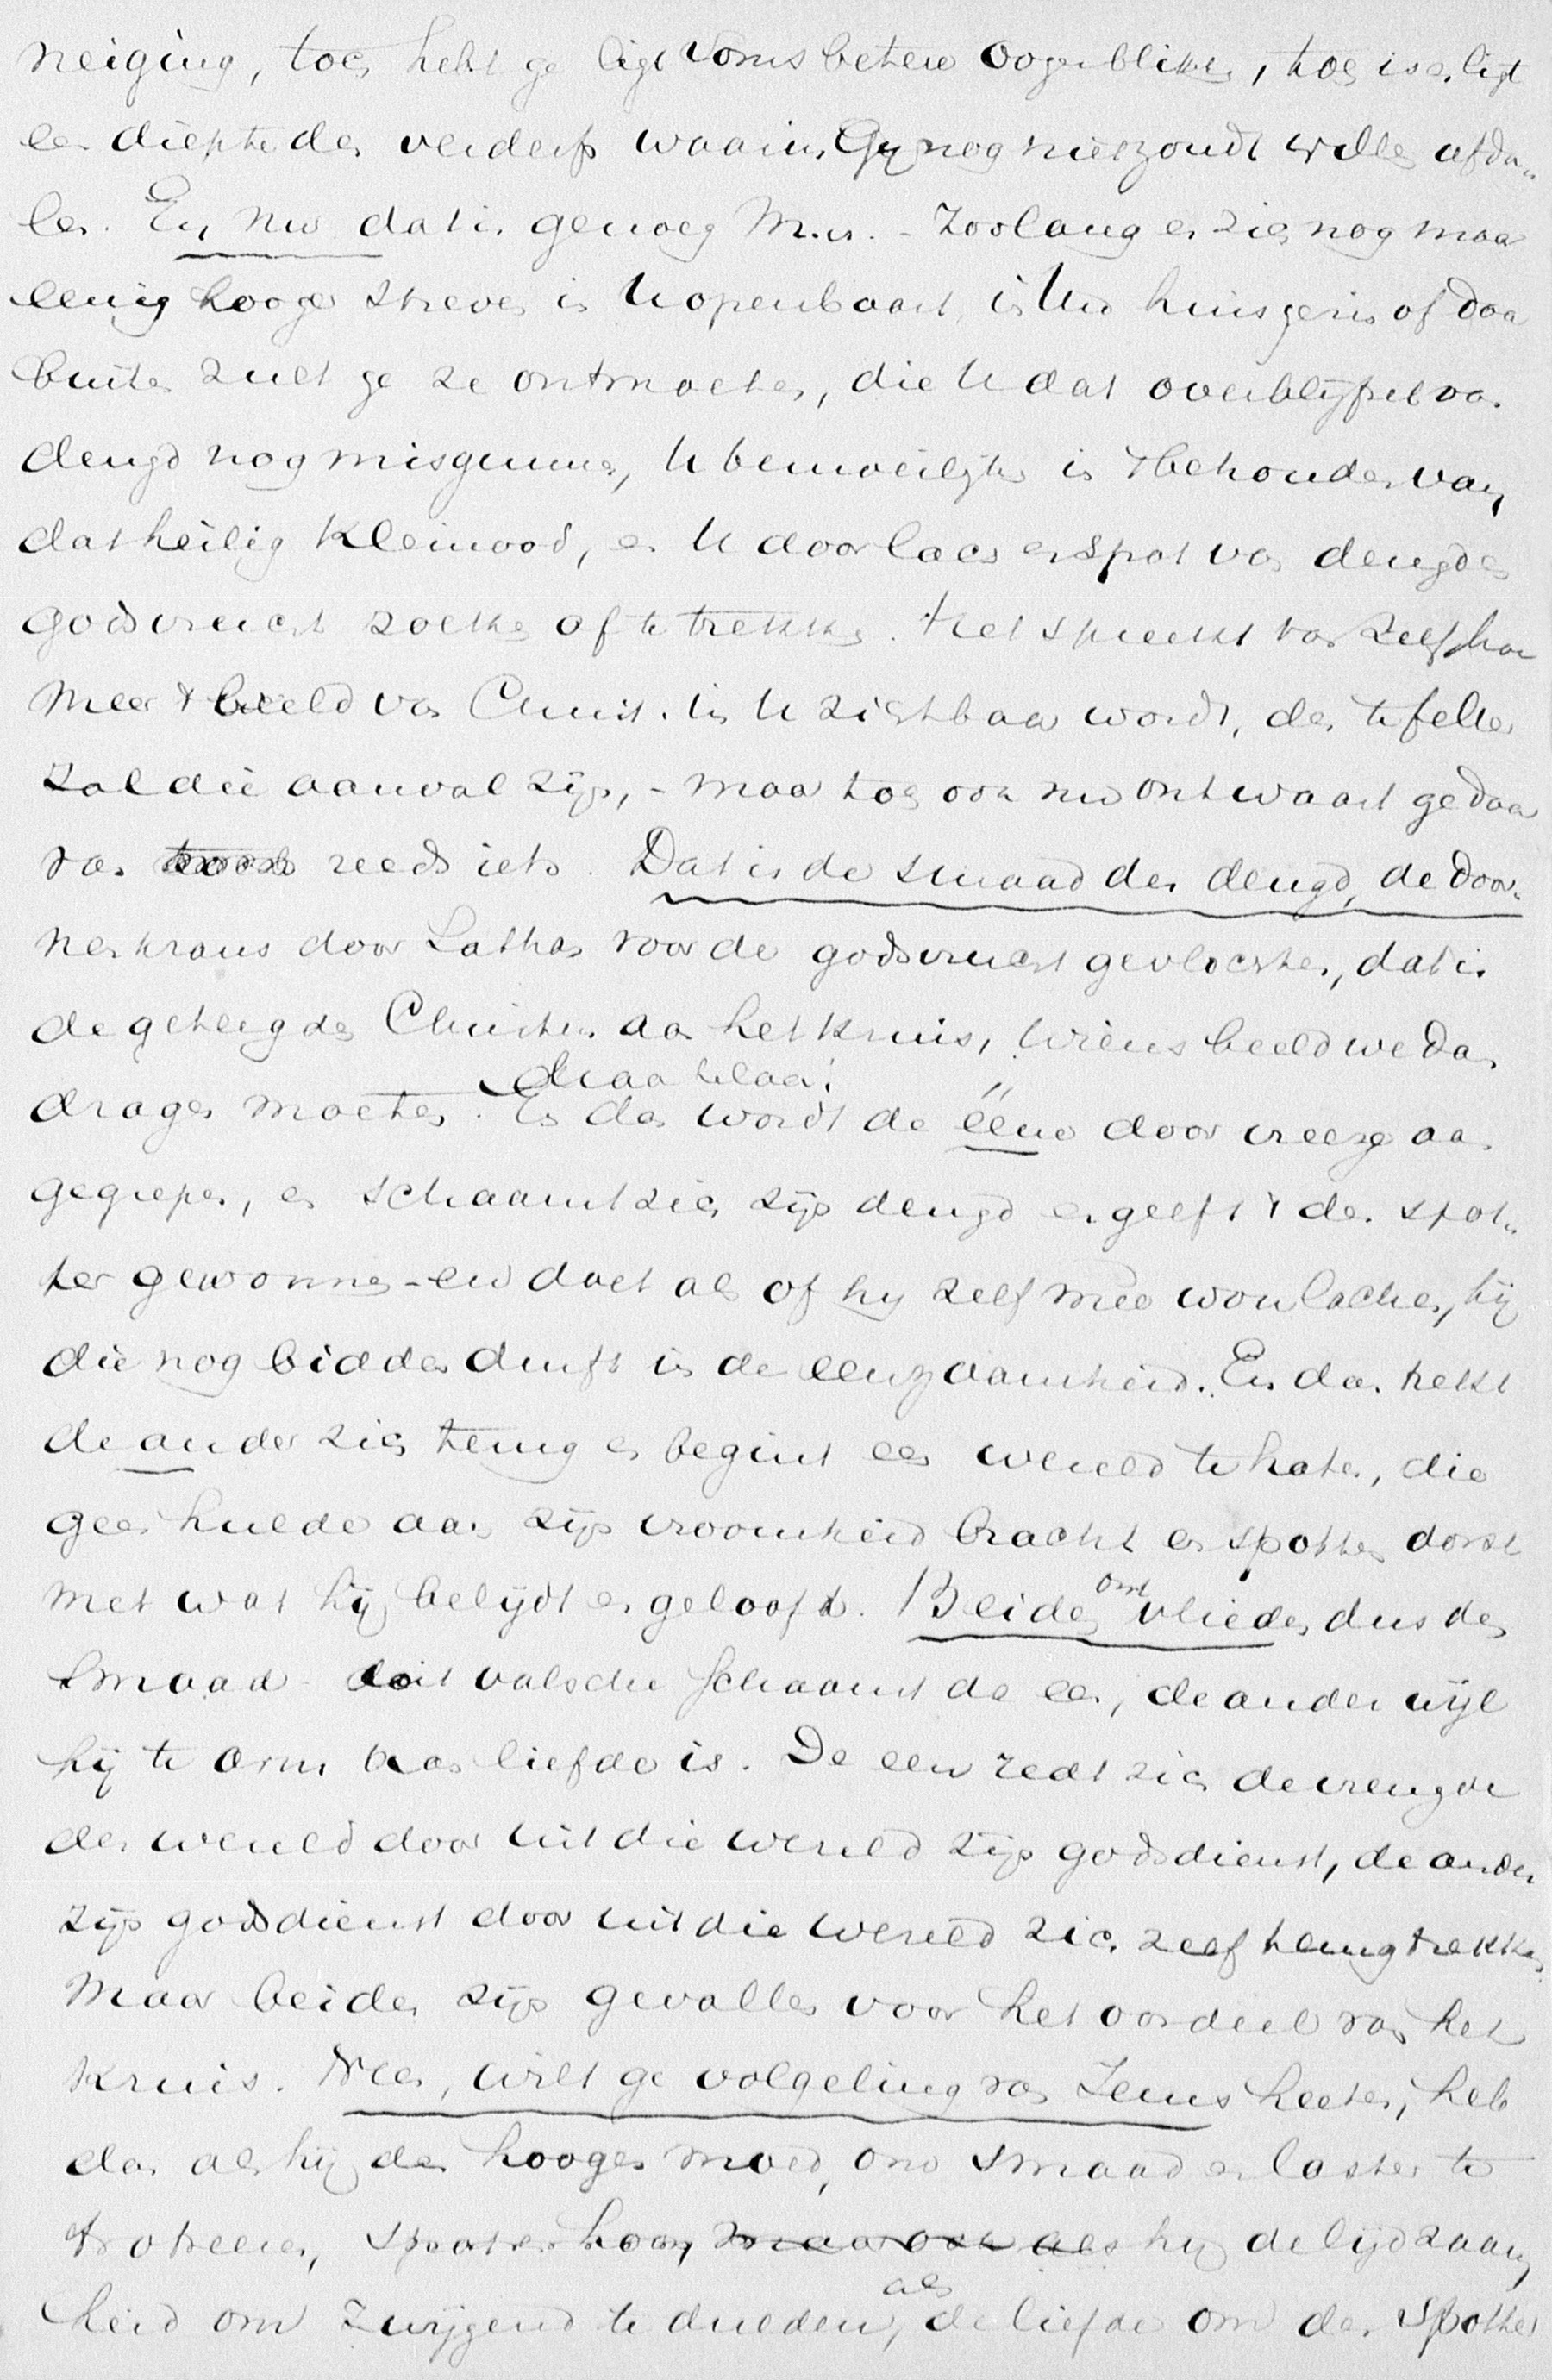 neiging, toch hebt ge ligt soms betere oogenblikken, toch is er ligt
een diepte des verderfs waarin Gij nog niet zoudt willen afda-
len. En nu dat is genoeg M.V. - Zoolang er zich nog maar
eenig hooger streven in U openbaart, in Uw huisgezin of daar
buiten zult ge ze ontmoeten, die U dat overblijfsel van
deugd nog misgunnen, U bemoeilijken in t behouden van
dat heilig kleinood, en U door lach en spot van deugd en
godsvrucht zoeken af te trekken. Het spreekt van zelf, hoe
meer t beeld van Christ. in U zichtbaar wordt, des te feller
zal die aanval zijn, - maar toch ook nu ontwaart ge daar
van reeds iets. Dat is de smaad der deugd, de door-
nenkrans door Sathan voor de godsvrucht gevlochten, dat is
de gehengde Christus aan het kruis, wiens beeld we dan
dragen moeten. Maar helaas!
En dan wordt de ééne door vreeze aan-
gegrepen, en schaamt zich zijn deugd en geeft t den spot-
ter gewonnen - en doet als of hij zelf mee wou lachen, hij
die nog bidden durft in de eenzaamheid. En dan trekt
de ander zich terug en begint een wereld te haten, die
geen hulde aan zijn vroomheid bracht en spotten dorst
met wat hij belijdt en gelooft. Beiden ontvlieden dus den
smaad - uit valsche schaamt de een, de ander wijl
hij te arm aan liefde is. De een redt zich de vreugde
der wereld door uit die wereld zijn godsdienst, de ander
zijn godsdienst door uit die wereld zich zelf terugtrekken.
Maar beiden zijn gevallen voor het oordeel van het
kruis. Neen, wilt ge volgeling van Jezus heeten, heb
dan als hij den hoogen moed, om smaad en laster te
trotseeren, spot en hoon, maar ook als hij de lijdzaam
heid om zwijgend te dulden, als de liefde om den spotter